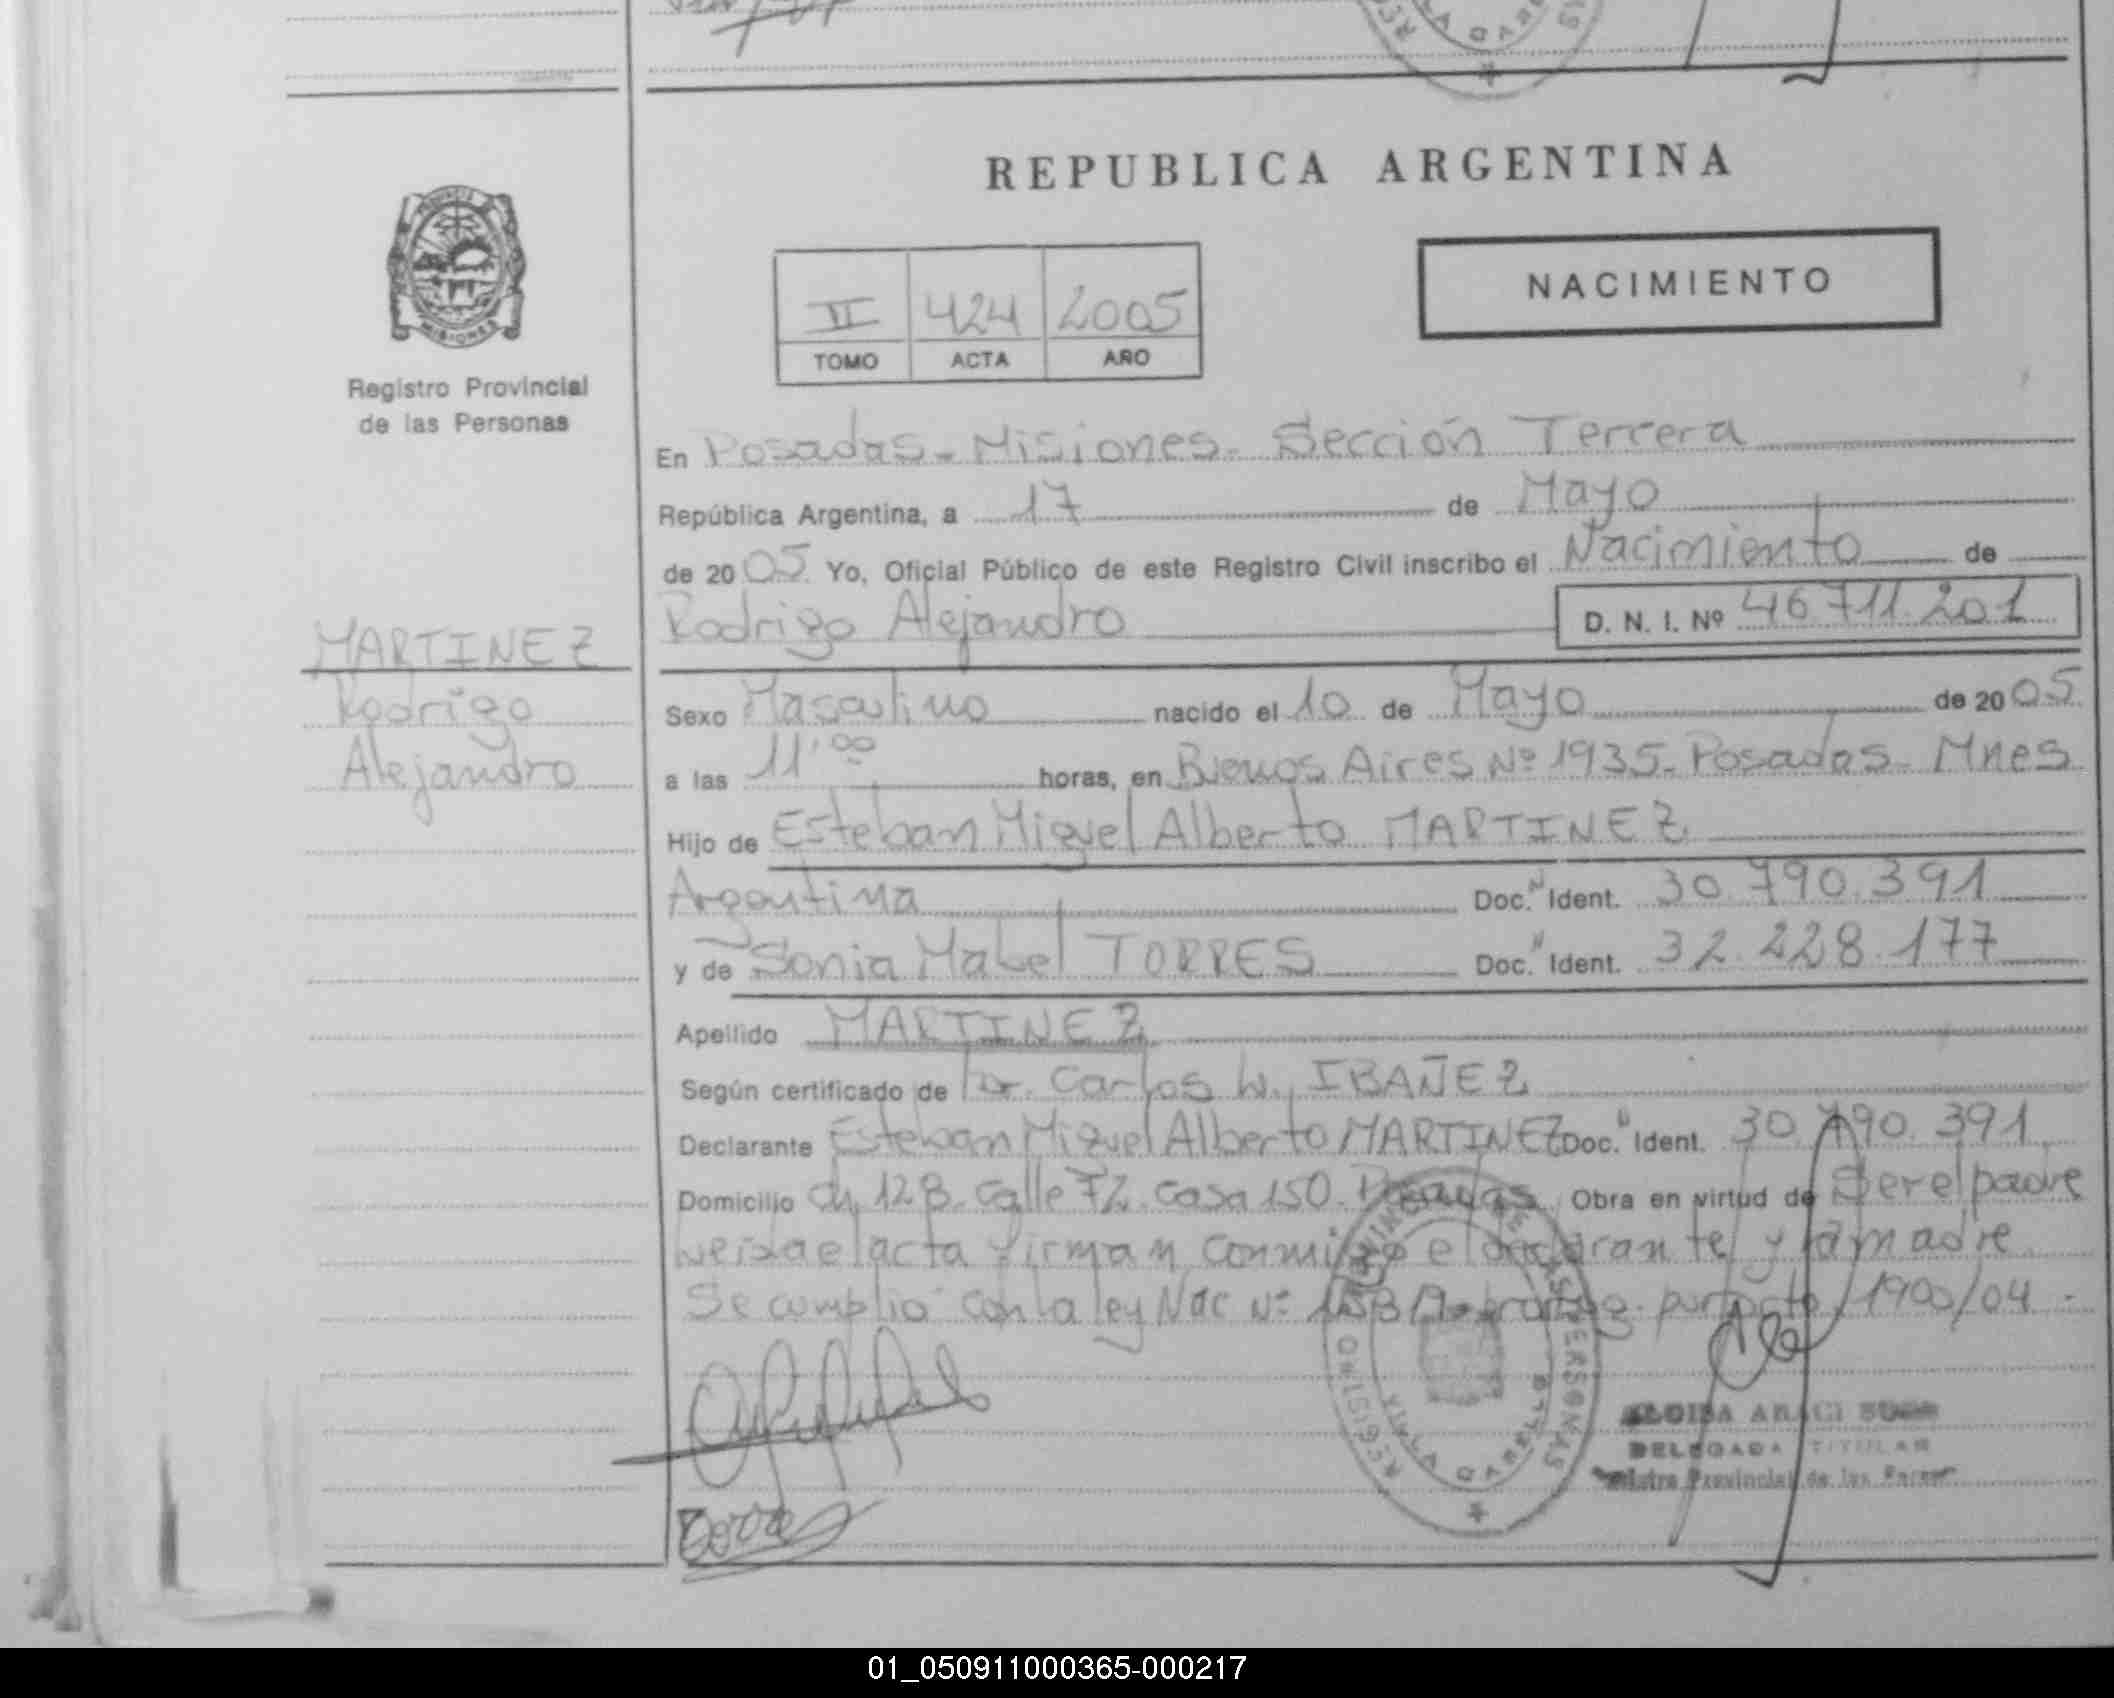 REPUBLICA ARGENTINA
PROVINCIA
MISIONES
Registro Provincial
de las Personas
II 424 2005
TOMO ACTA AÑO
NACIMIENTO
En Posadas - Misiones - Sección Tercera
República Argentina, a 17 de Mayo
de 2005 Yo, Oficial Público de este Registro Civil inscribo el Nacimiento de
Rodrigo Alejandro D. N. I. Nº 46.711.201
MARTINEZ
Rodrigo
Alejandro
Sexo Masculino nacido el 10 de Mayo de 2005
a las 11,00 horas, en Buenos Aires Nº 1935 - Posadas - Mnes
Hijo de Esteban Miguel Alberto MARTINEZ
Argentina Doc. Ident. 30.790.391
y de Sonia Mabel TORRES Doc. Ident. 32.228.177
Apellido MARTINEZ
Según certificado de Dr. Carlos W. IBAÑEZ
Declarante Esteban Miguel Alberto MARTINEZ Doc. Ident. 30.790.391
Domicilio ch 128. Calle 72. casa 150. Posadas Obra en virtud de Ser el padre
el acta firman conmigo el declarante y la madre
Se cumplio con la ley Nac Nº 1900/04 -
REGISTRO PERSONAS
VILLA
DELEGADA TITULAR
Provincial de las
01_050911000365-000217